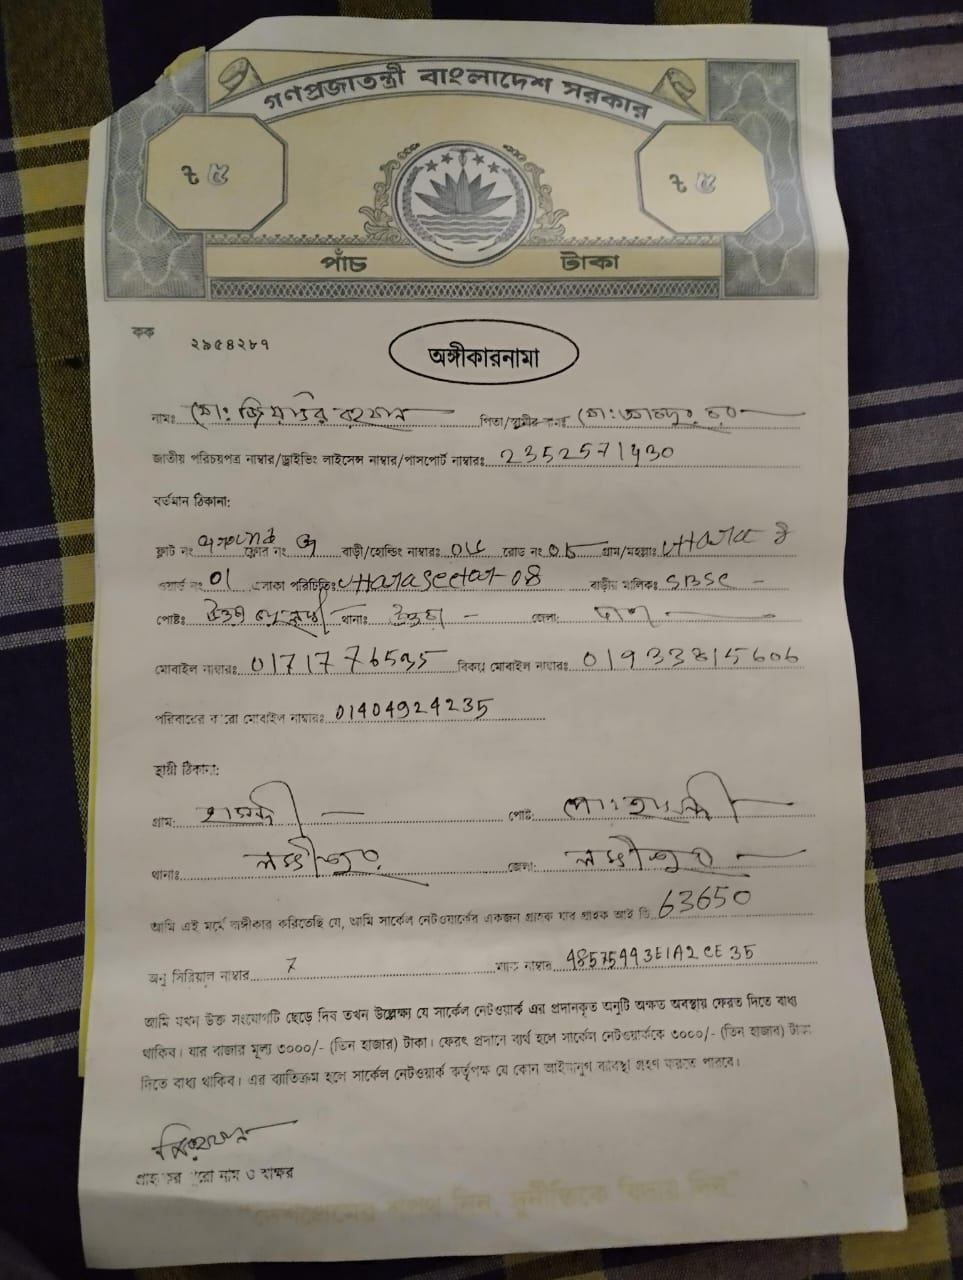 গণপ্রজাতন্ত্রী বাংলাদেশ সরকার
৳ ৫ ৳ ৫
পাঁচ টাকা
কক ২৯৫৪২৮৭
অঙ্গীকারনামা
নামঃ মোঃ জিয়াউর রহমান পিতা/স্বামীর নামঃ মোঃ
জাতীয় পরিচয়পত্র নাম্বার/ড্রাইভিং লাইসেন্স নাম্বার/পাসপোর্ট নাম্বারঃ 2352571430
বর্তমান ঠিকানা:
ফ্লাট নং ফ্লোর নং বাড়ী/হোল্ডিং নাম্বারঃ রোড নং গ্রাম/মহল্লাঃ Uttara 8
ওয়ার্ড নং 01 এলাকা পরিচিতিঃ Uttara Sector-08 বাড়ীর মালিকঃ SBSC -
পোষ্টঃ থানাঃ উত্তরা - জেলা: ঢাকা
মোবাইল নাম্বারঃ 01717765535 বিকল্প মোবাইল নাম্বারঃ 01933815606
পরিবারের কারো মোবাইল নাম্বারঃ 01404924235
স্থায়ী ঠিকানা:
গ্রাম: পোষ্ট:
থানাঃ লক্ষীপুর জেলা: লক্ষীপুর
আমি এই মর্মে অঙ্গীকার করিতেছি যে, আমি সার্কেল নেটওয়ার্কের একজন গ্রাহক যার গ্রাহক আই ডি 63650
অনু সিরিয়াল নাম্বার 7 ম্যাক নাম্বার 48575443E1A2CE35
আমি যখন উক্ত সংযোগটি ছেড়ে দিব তখন উল্লেক্ষ্য যে সার্কেল নেটওয়ার্ক এর প্রদানকৃত অনুটি অক্ষত অবস্থায় ফেরত দিতে বাধ্য
থাকিব। যার বাজার মূল্য ৩০০০/- (তিন হাজার) টাকা। ফেরৎ প্রদানে ব্যর্থ হলে সার্কেল নেটওয়ার্ককে ৩০০০/- (তিন হাজার) টাকা
দিতে বাধ্য থাকিব। এর ব্যাতিক্রম হলে সার্কেল নেটওয়ার্ক কর্তৃপক্ষ যে কোন আইনানুগ ব্যাবস্থা গ্রহণ করতে পারবে।
গ্রাহকের পুরো নাম ও স্বাক্ষর
"দেশপ্রেমের শপথ নিন, দুর্নীতিকে বিদায় দিন"